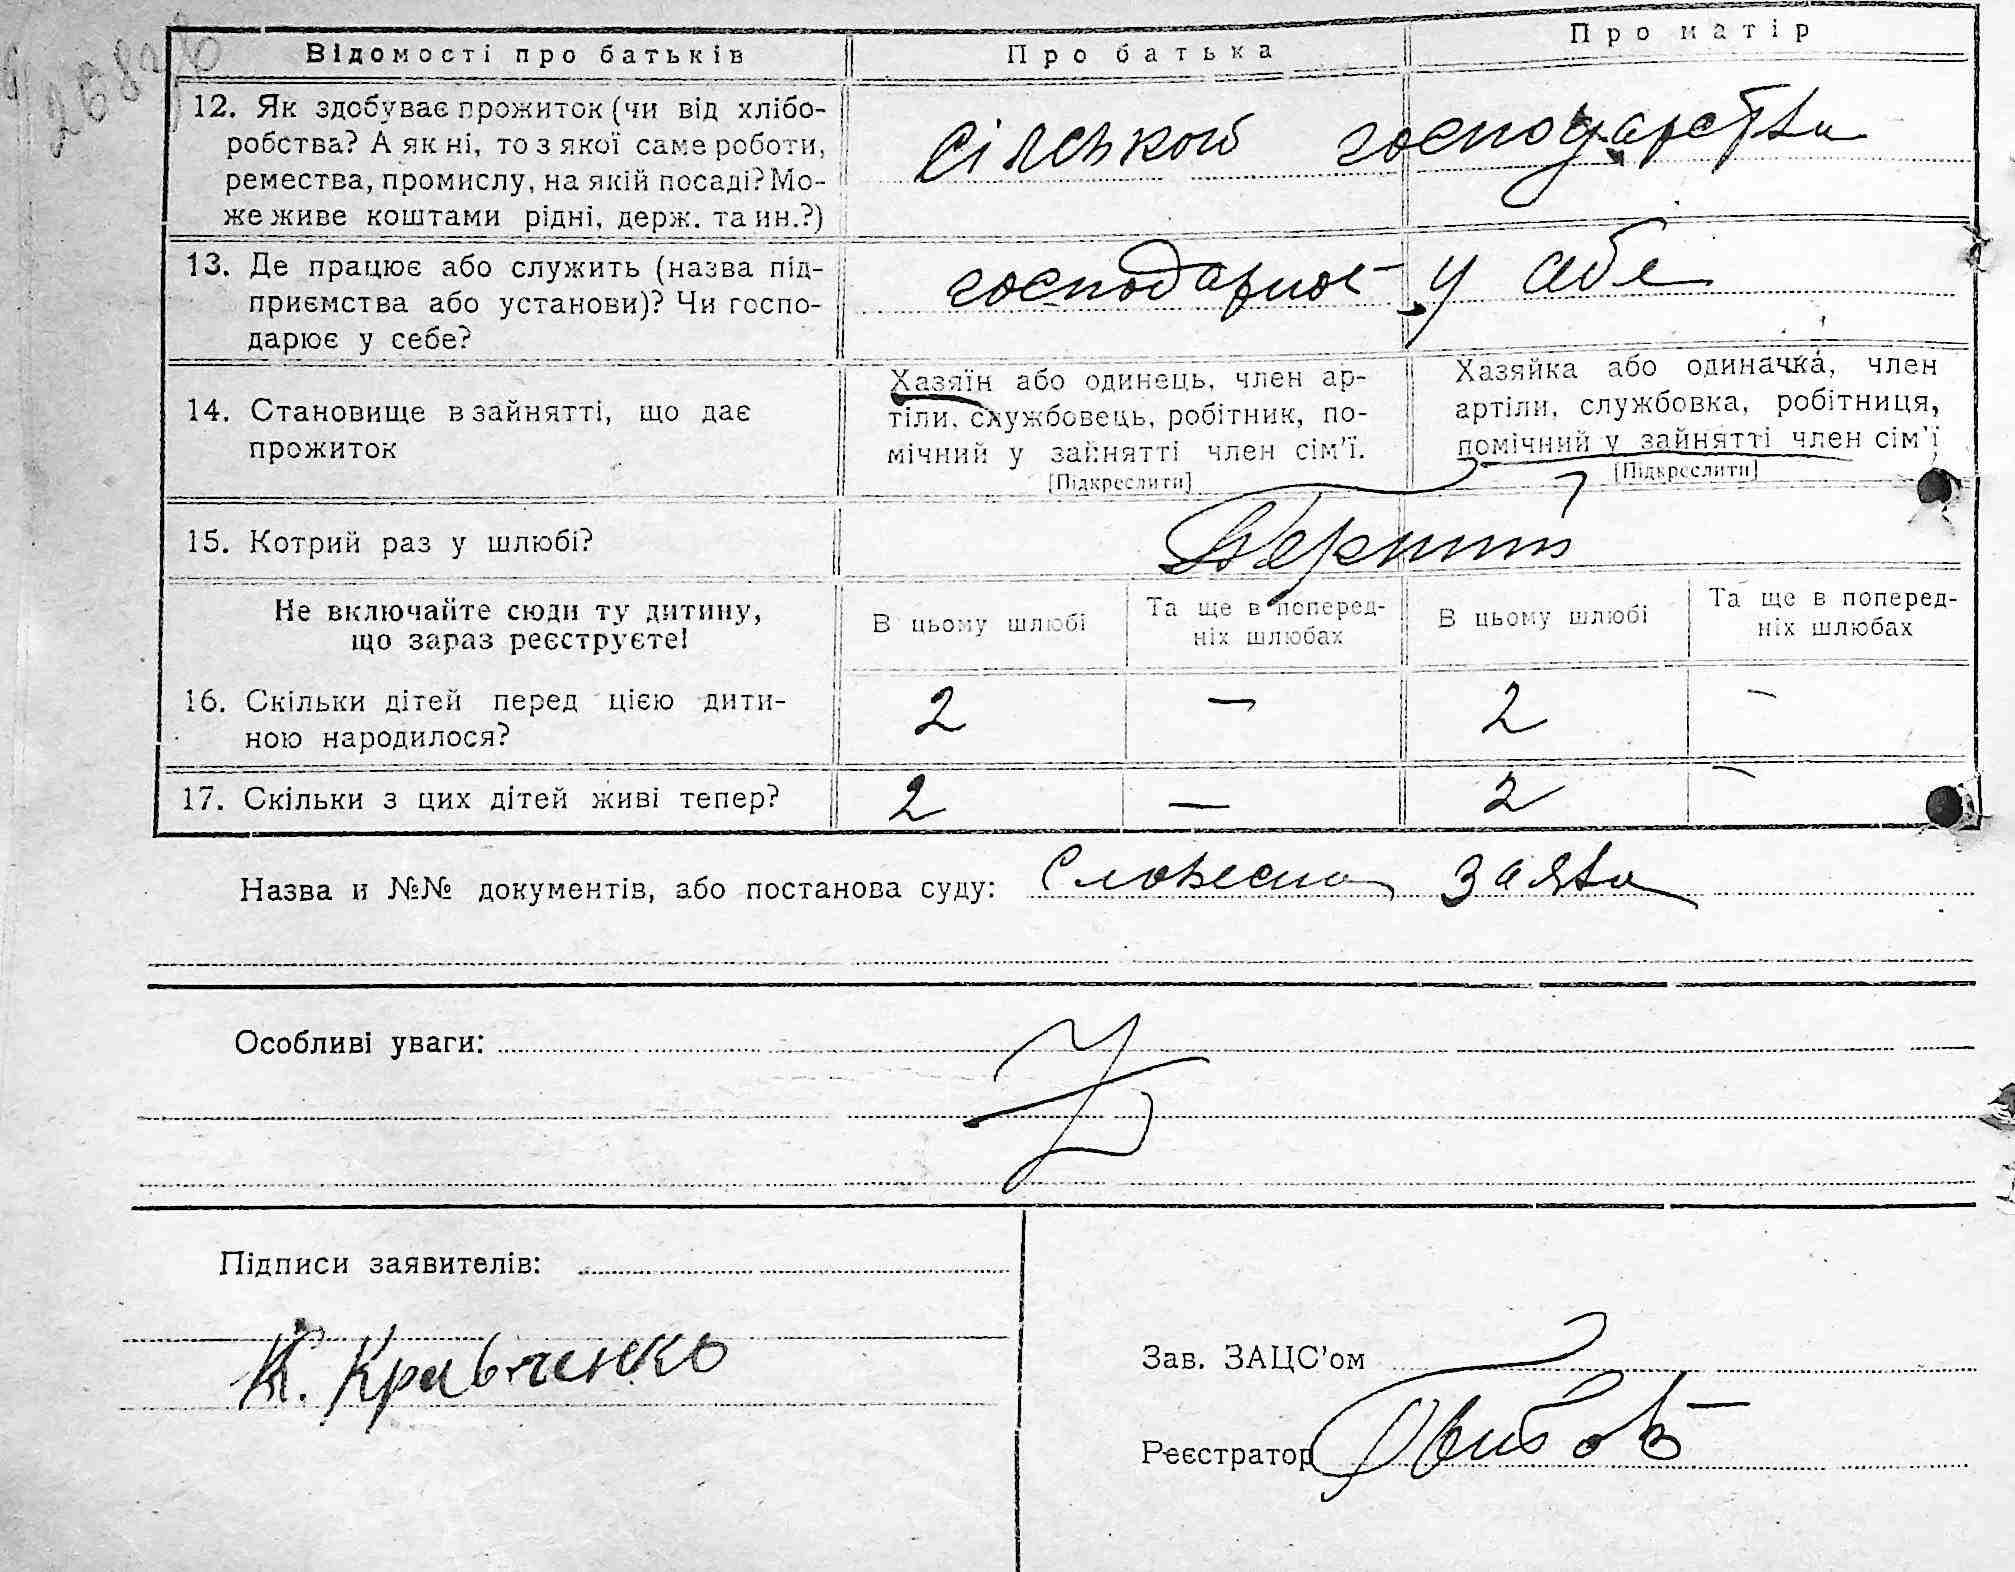 Відомості про батьків Про батька Про матір
12. Як здобуває прожиток (чи від хлібо-
робства? А як ні, то з якої саме роботи,
ремества, промислу, на якій посаді? Мо-
же живе коштами рідні, держ. та ин.?)
сілської господарства
13. Де працює або служить (назва під-
приємства або установи)? Чи госпо-
дарює у себе?
господарює у себе
14. Становище в зайнятті, що дає
прожиток
Хазяїн або одинець, член ар-
тіли, службовець, робітник, по-
мічний у зайнятті член сім'ї.
[Підкреслити]
Хазяйка або одиначка, член
артіли, службовка, робітниця,
помічний у зайнятті член сім'ї
[Підкреслити]
15. Котрий раз у шлюбі?
Не включайте сюди ту дитину,
що зараз реєструєте!
В цьому шлюбі
Та ще в поперед-
ніх шлюбах
В цьому шлюбі
Та ще в поперед-
ніх шлюбах
16. Скільки дітей перед цією дити-
ною народилося?
2 — 2 —
17. Скільки з цих дітей живі тепер? 2 — 2 —
Назва и №№ документів, або постанова суду: Словесна заява
Особливі уваги:
Підписи заявителів:
К. Кравченко
Зав. ЗАЦС'ом
Реєстратор